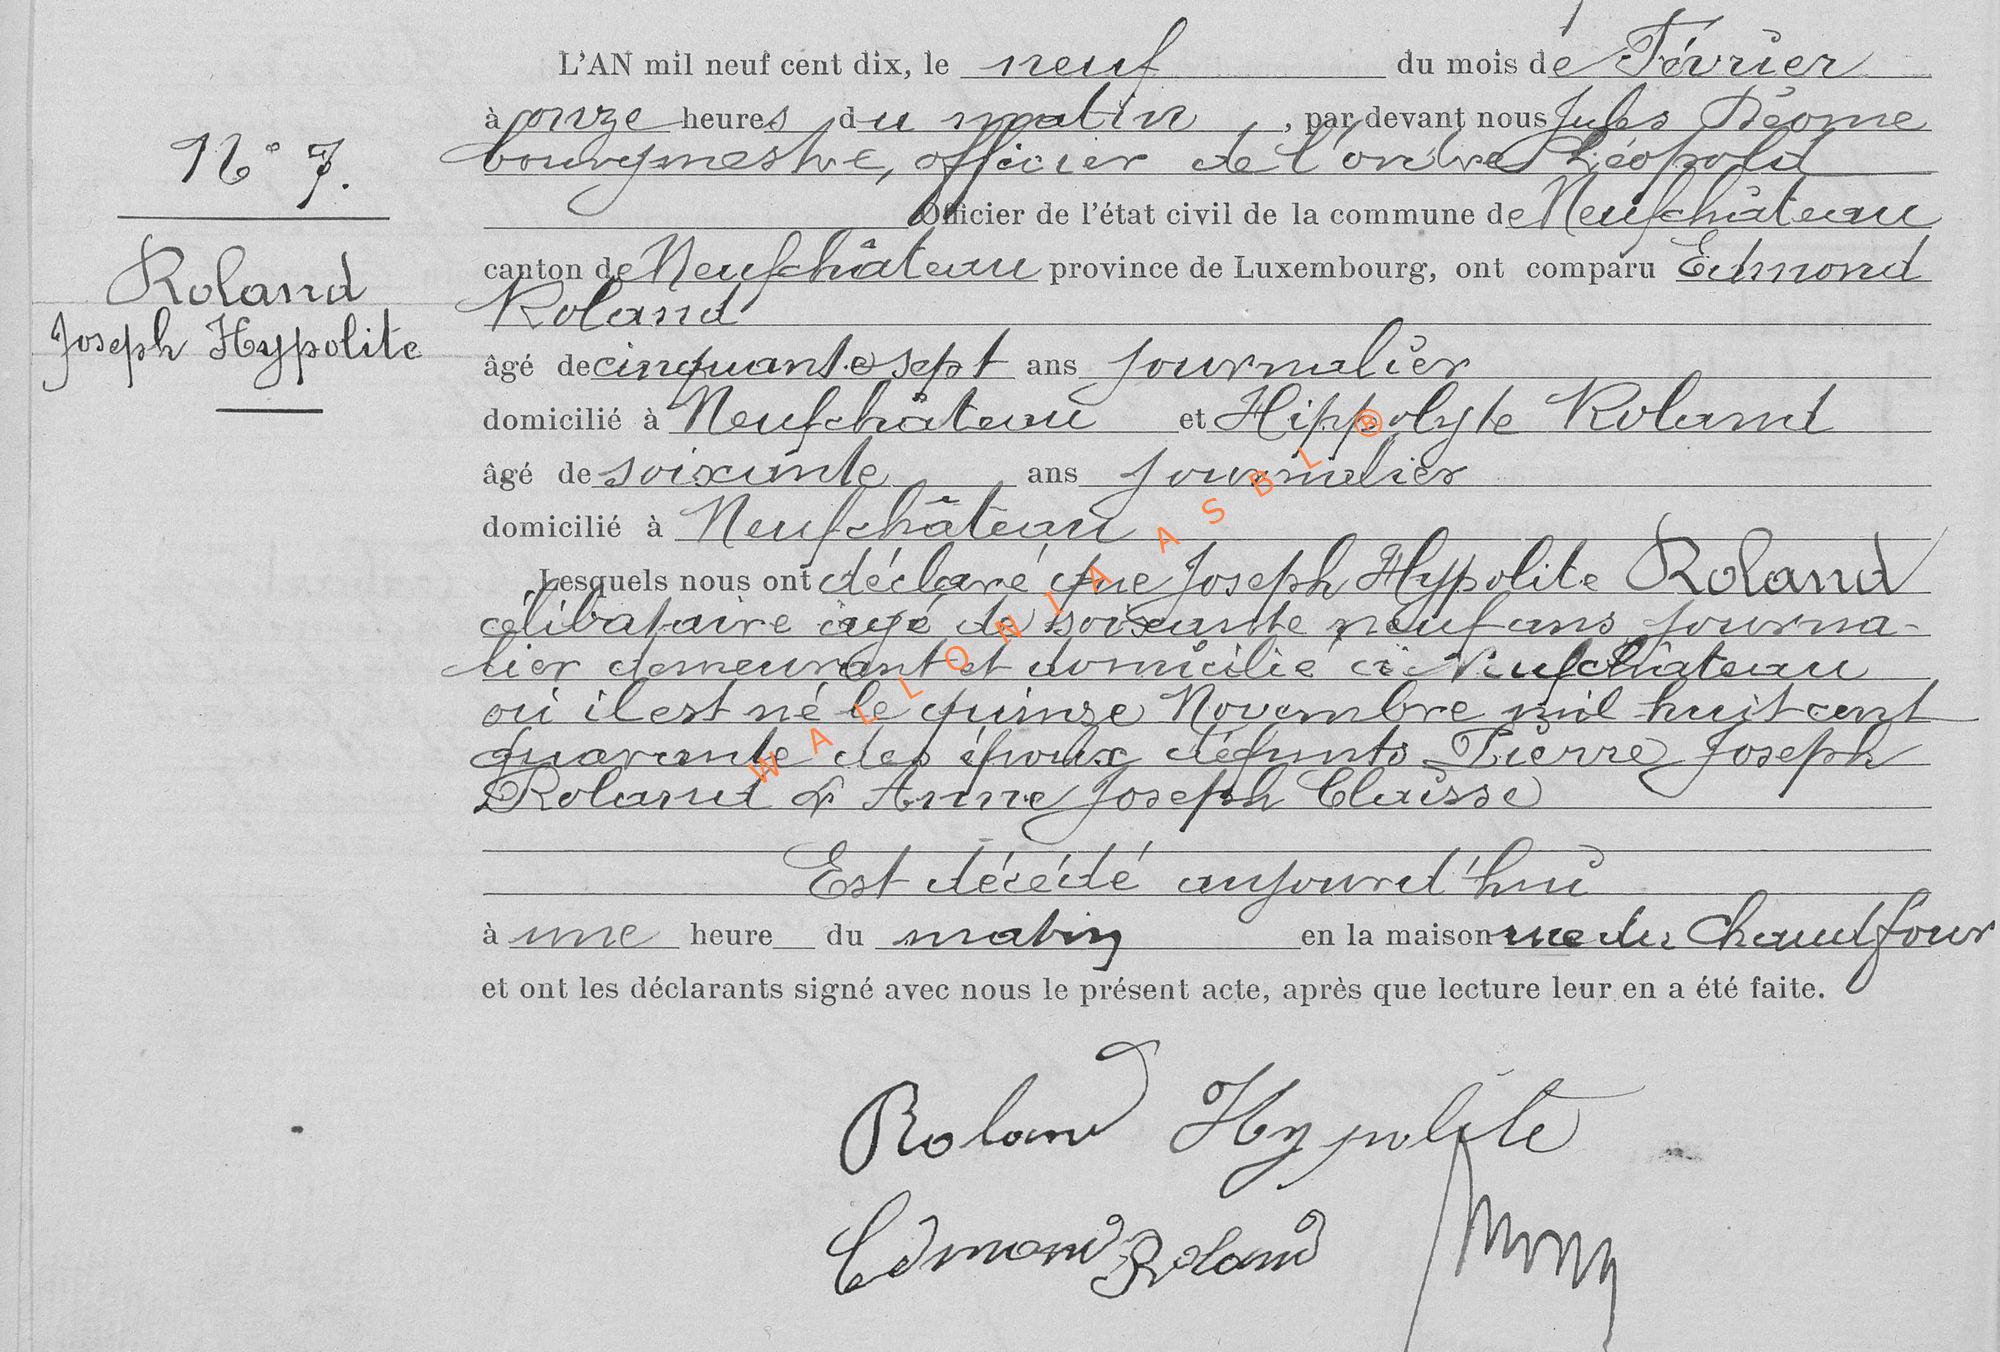 L'AN mil neuf cent dix, le neuf du mois de Février
à onze heures du matin, par devant nous Jules Déome
bourgmestre, officier de l'ordre Léopold
Officier de l'état civil de la commune de Neufchâteau
canton de Neufchâteau province de Luxembourg, ont comparu Edmond
Roland
âgé de cinquante sept ans journalier
domicilié à Neufchâteau et Hippolyte Roland
âgé de soixante ans journalier
domicilié à Neufchâteau
Lesquels nous ont déclaré que Joseph Hypolite Roland
célibataire âgé de soixante neuf ans journa-
lier demeurant et domicilié à Neufchâteau
où il est né le quinze Novembre mil huit cent
quarante des époux défunts Pierre Joseph
Roland & Anne Joseph Claisse
Est décédé aujourd'hui
à une heure du matin en la maison rue du Chaudfour
et ont les déclarants signé avec nous le présent acte, après que lecture leur en a été faite.
N° 7.
Roland
Joseph Hypolite
Roland Hypolite
Edmond Roland
WALLONIA ASBL ®